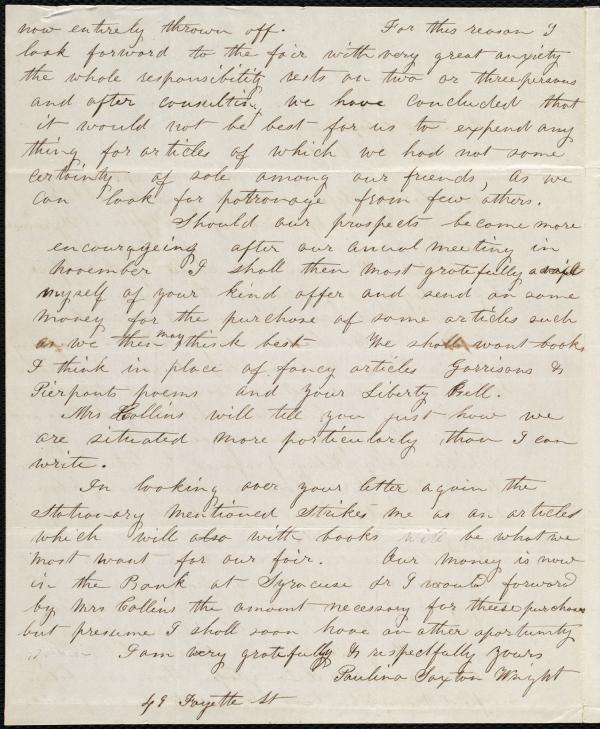 now entirely thrown off. For this reason I
look forward to the fair with very great anxiety
the whole responsibility rests on two or three persons
and after consulting we have concluded that
it would not be best for us to expend any
thing for articles of which we had not some
certainty of sale among our friends, as we
can look for patronage from few others.
Should our prospects become more
encourageing after our annual meeting in
November I shall then most gratefully avail
myself of your kind offer and send on some
money for the purchase of some articles such
as we then may think best We shall want books
I think in place of fancy articles Garrisons &
Pierponts poems and your Liberty Bell.
Mrs Collins will tell you just how we
are situated more particularly than I can
write.
In looking over your letter again the
Stationary mentioned strikes me as an articled
which will also with books will be what we
most want for our fair. Our money is now
in the Bank at Syracuse or I would forward
by Mrs Collins the amount necessary for these purchases
but presume I shall soon have an other oportunity
I am very gratefully & respectfully yours
Paulina Saxton Wright
49 Fayette St